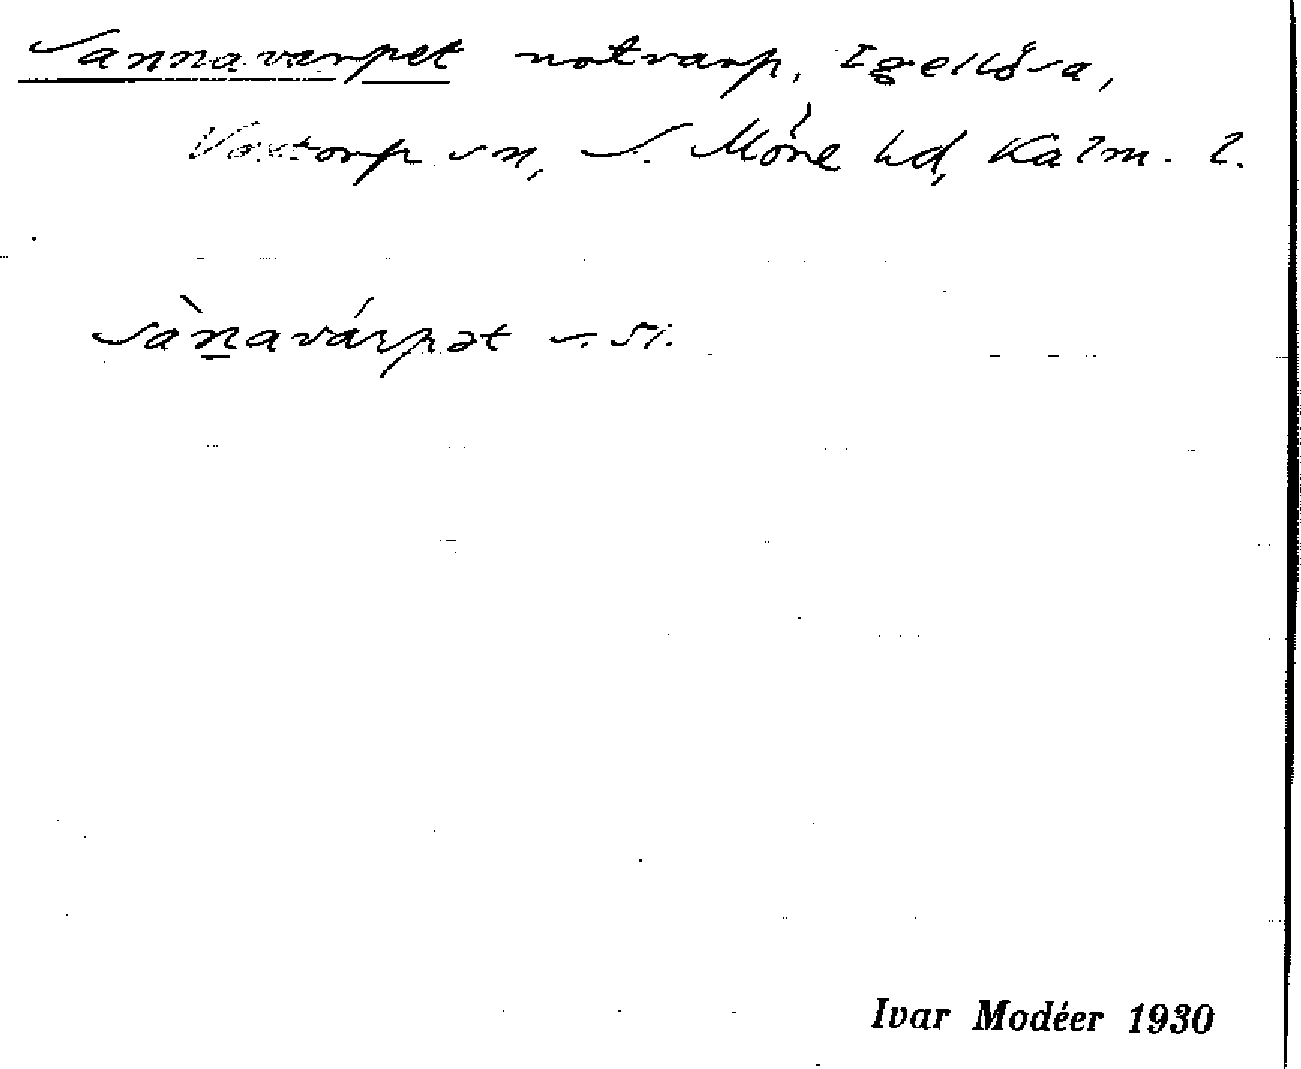 Sannavarpet notvarp, Igellösa,
Voxtorp sn, S. Möre hd, Kalm. l.
sànavárpət s. 51.
Ivar Modéer 1930